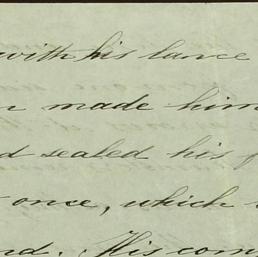 with his lance
made him
sealed his
once, which
His com